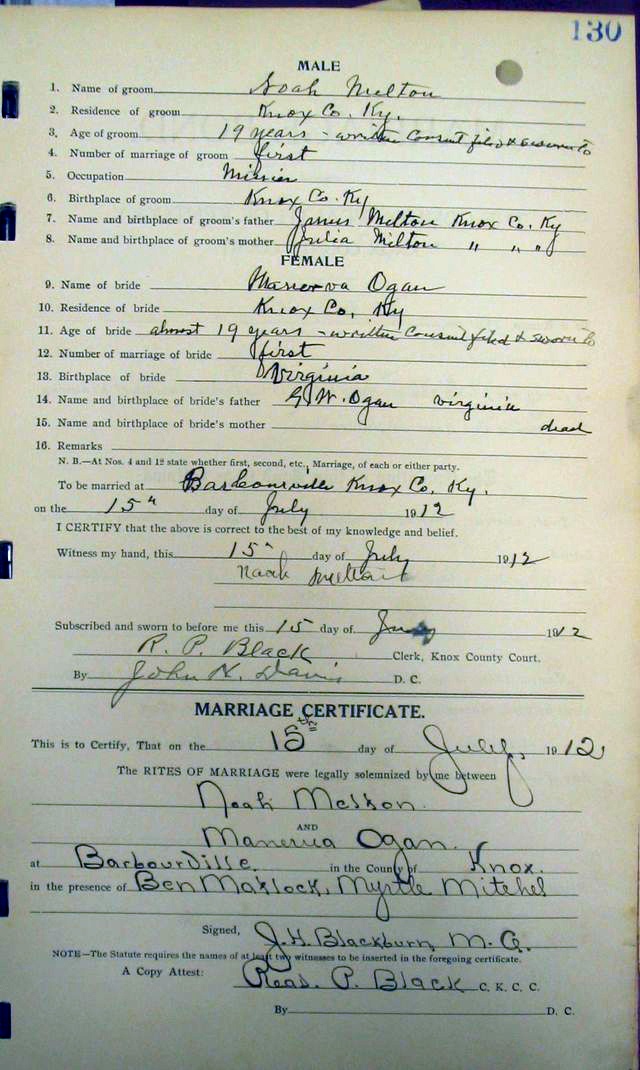 130
MALE
1. Name of groom Noah Melton
2. Residence of groom Knox Co. Ky.
3. Age of groom 19 years - written Consent filed & sworn to
4. Number of marriage of groom first
5. Occupation
6. Birthplace of groom Knox Co. Ky
7. Name and birthplace of groom's father James Melton Knox Co. Ky
8. Name and birthplace of groom's mother Julia Milton " " "
FEMALE
9. Name of bride Manerva Ogan
10. Residence of bride Knox Co, Ky
11. Age of bride almost 19 years - written Consent filed & sworn to
12. Number of marriage of bride first
13. Birthplace of bride Virginia
14. Name and birthplace of bride's father G. W. Ogan virginia
15. Name and birthplace of bride's mother dead
16. Remarks
N. B.—At Nos. 4 and 12 state whether first, second, etc., Marriage, of each or either party.
To be married at Knox Co, Ky.
on the 15" day of July 1912
I CERTIFY that the above is correct to the best of my knowledge and belief.
Witness my hand, this 15" day of July 1912
Noah
Subscribed and sworn to before me this 15 day of July 1912
R. P. Black Clerk, Knox County Court.
By John N. Davis D. C.
MARRIAGE CERTIFICATE.
This is to Certify, That on the 15th day of July, 1912
The RITES OF MARRIAGE were legally solemnized by me between
Noah Melton.
AND
Manerva Ogan.
at Barbourville. in the County of Knox.
in the presence of Ben Matlock, Myrtle Mitchel
Signed, J. H. Blackburn, M. G.
NOTE—The Statute requires the names of at least two witnesses to be inserted in the foregoing certificate.
A Copy Attest: Read. P. Black C. K. C. C.
By D. C.